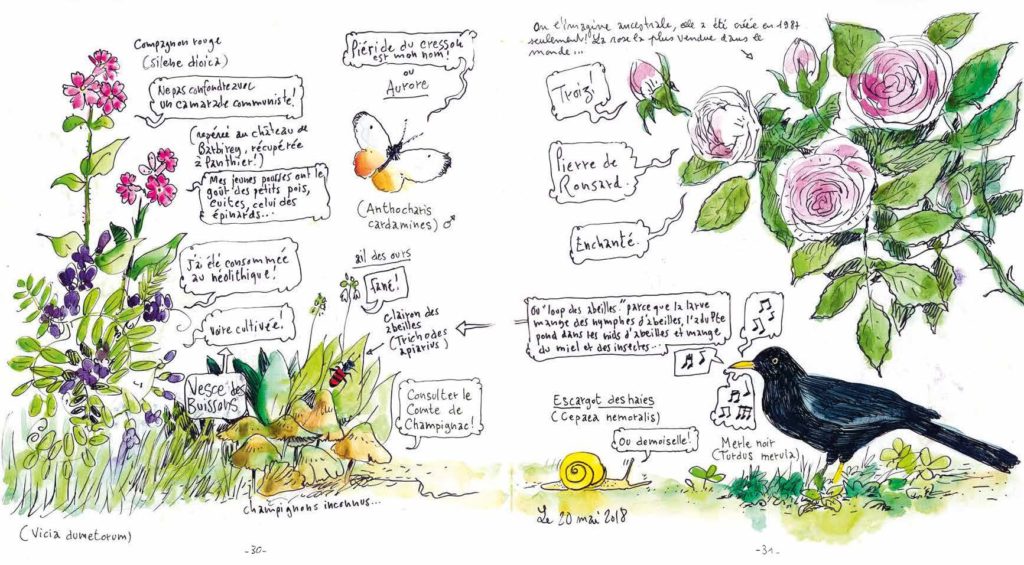 Compagnon rouge
(silene dioica)
Ne pas confondre avec
un camarade communiste!
(repérée au château de
Barbirey, récupérée
à Panthier!)
Mes jeunes pousses ont le
goût des petits pois,
cuites, celui des
épinards...
J'ai été consommée
au néolithique!
Voire cultivée!
Vesce des
Buissons
(Vicia dumetorum)
Piéride du cresson
est mon nom!
ou
Aurore
(Anthocharis
cardamines) ♂
ail des ours
Fané!
Clairon des
abeilles
(Trichodes
apiarius)
Consulter le
Comte de
Champignac!
champignons inconnus...
-30-
On l'imagine ancestrale, elle a été créée en 1987
seulement! La rose la plus vendue dans le
monde...
Troiz!
Pierre de
Ronsard.
Enchanté.
Ou "loup des abeilles" parce que la larve
mange des nymphes d'abeilles, l'adulte
pond dans les nids d'abeilles et mange
du miel et des insectes...
Escargot des haies
(Cepaea nemoralis)
Ou demoiselle!
Merle noir
(Turdus merula)
Le 20 mai 2018
-31-